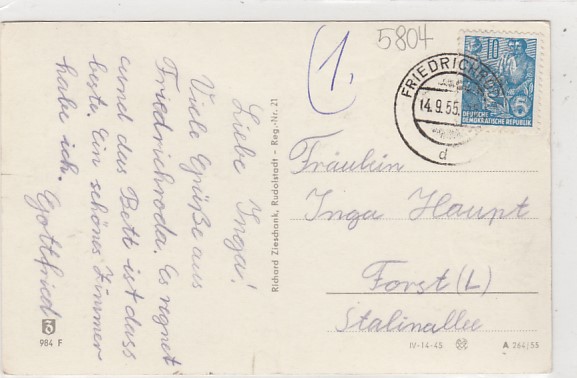 5804
1.
Liebe Inga!
Viele Grüße aus
Friedrichroda. Es regnet
und das Bett ist dass
beste. Ein schönes Zimmer
habe ich. Gottfried
Richard Zieschank, Rudolstadt - Reg.-Nr. 21
FRIEDRICHRODA
14.9.55
d
10
5
DEUTSCHE
DEMOKRATISCHE REPUBLIK
Fräulein
Inga Haupt
Forst (L)
Stalinallee
984 F
IV-14-45
A 264/55